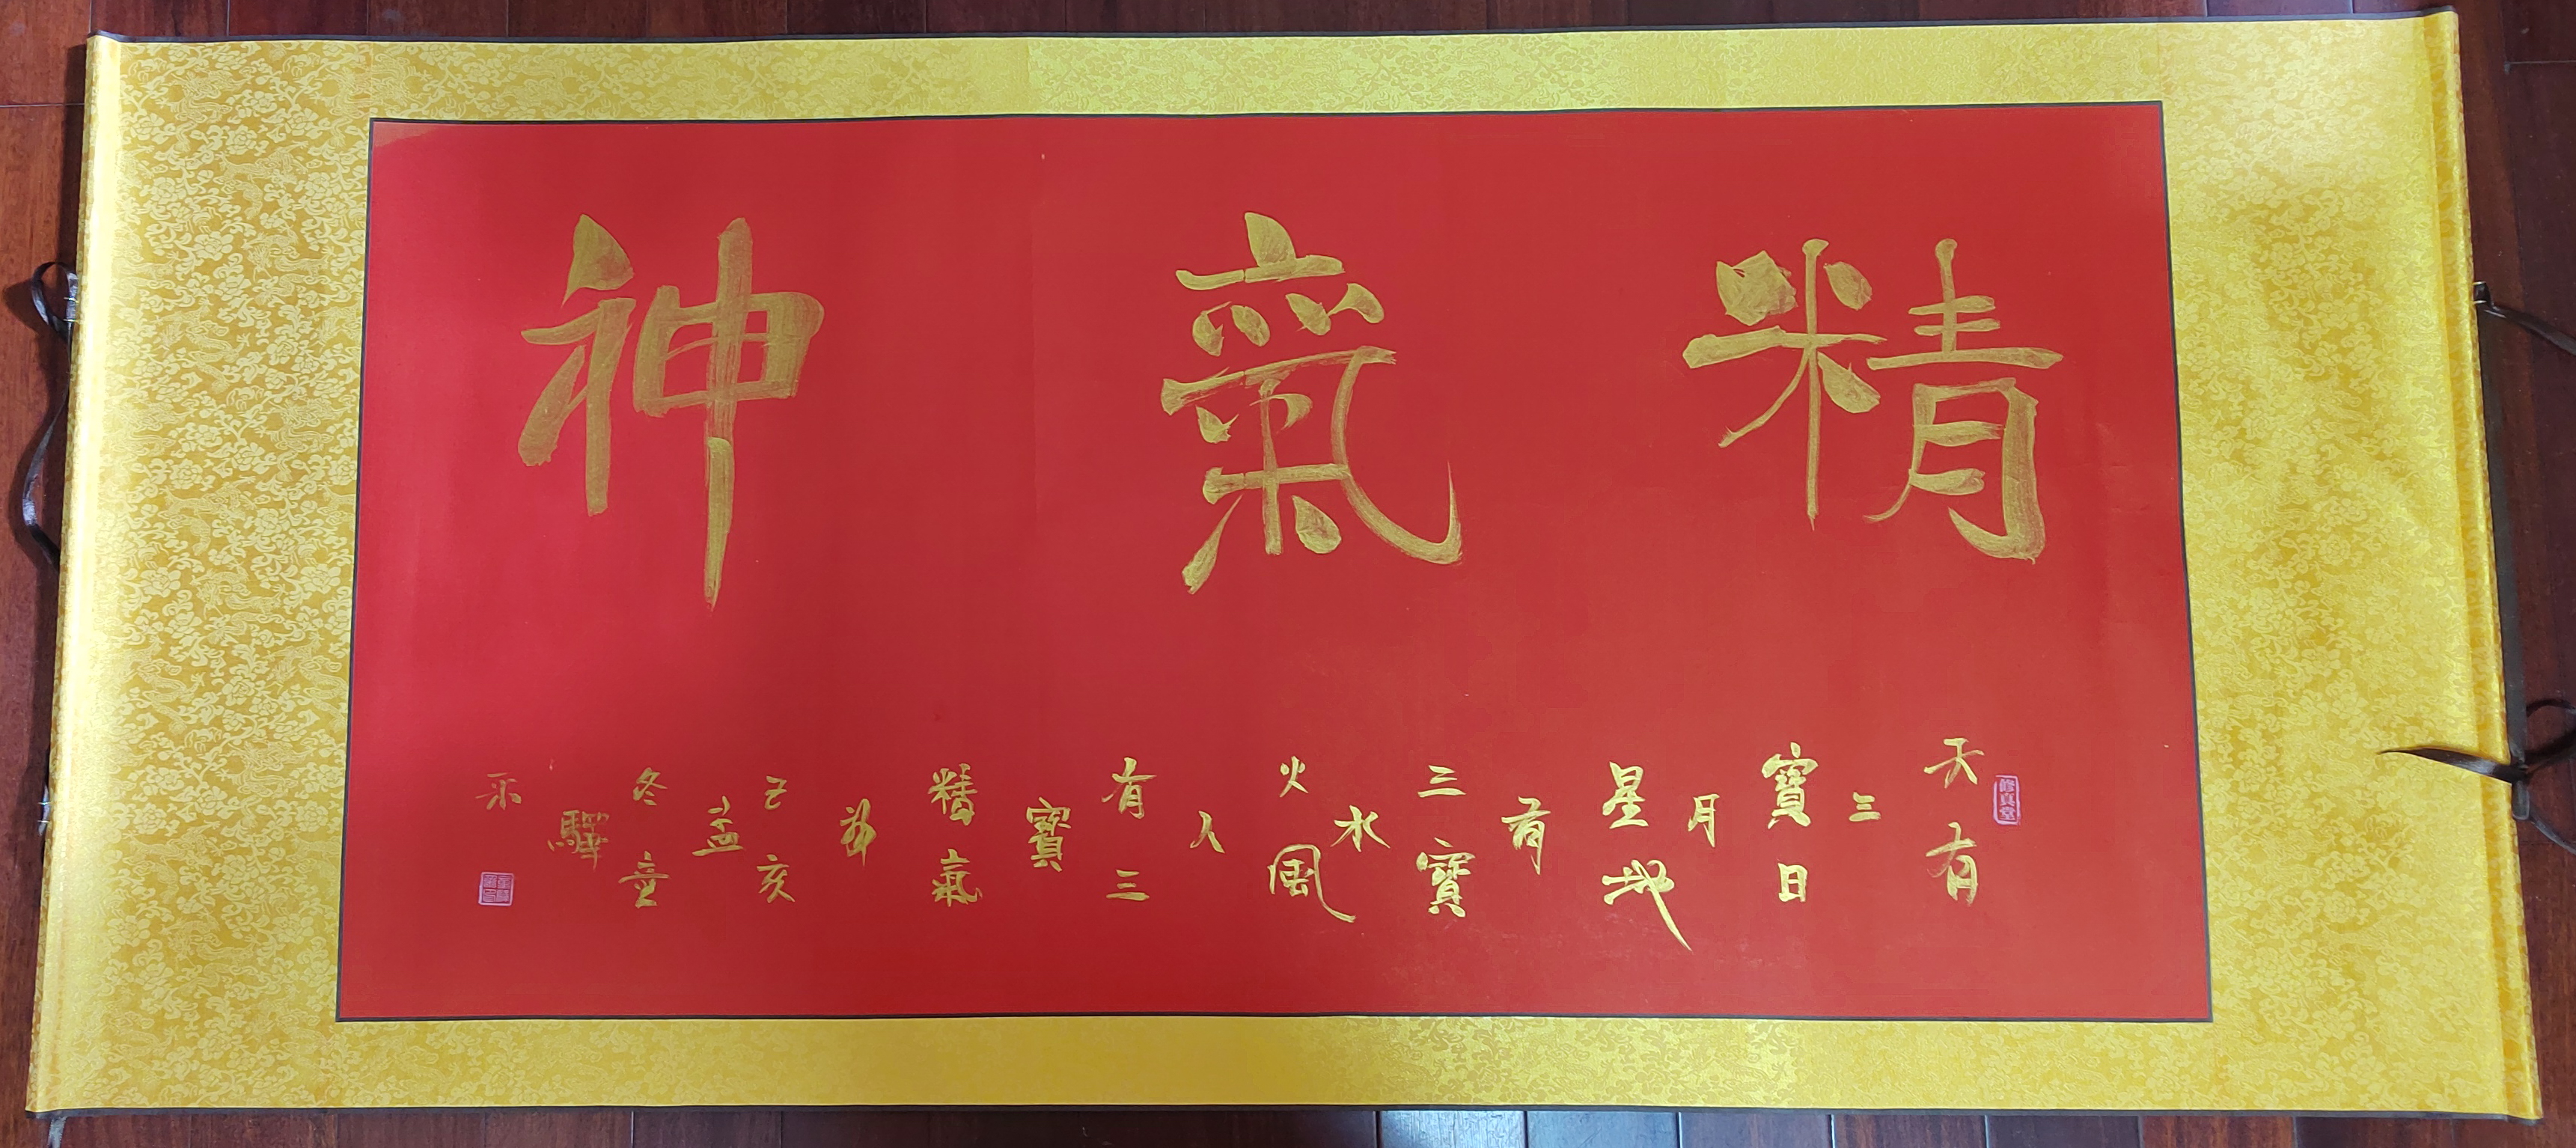 精氣神
修真堂
天有
三
寶日
月
星地
有
三寶
水
火風
人
有三
寶
精氣
神
己亥
孟
冬童
驊
示